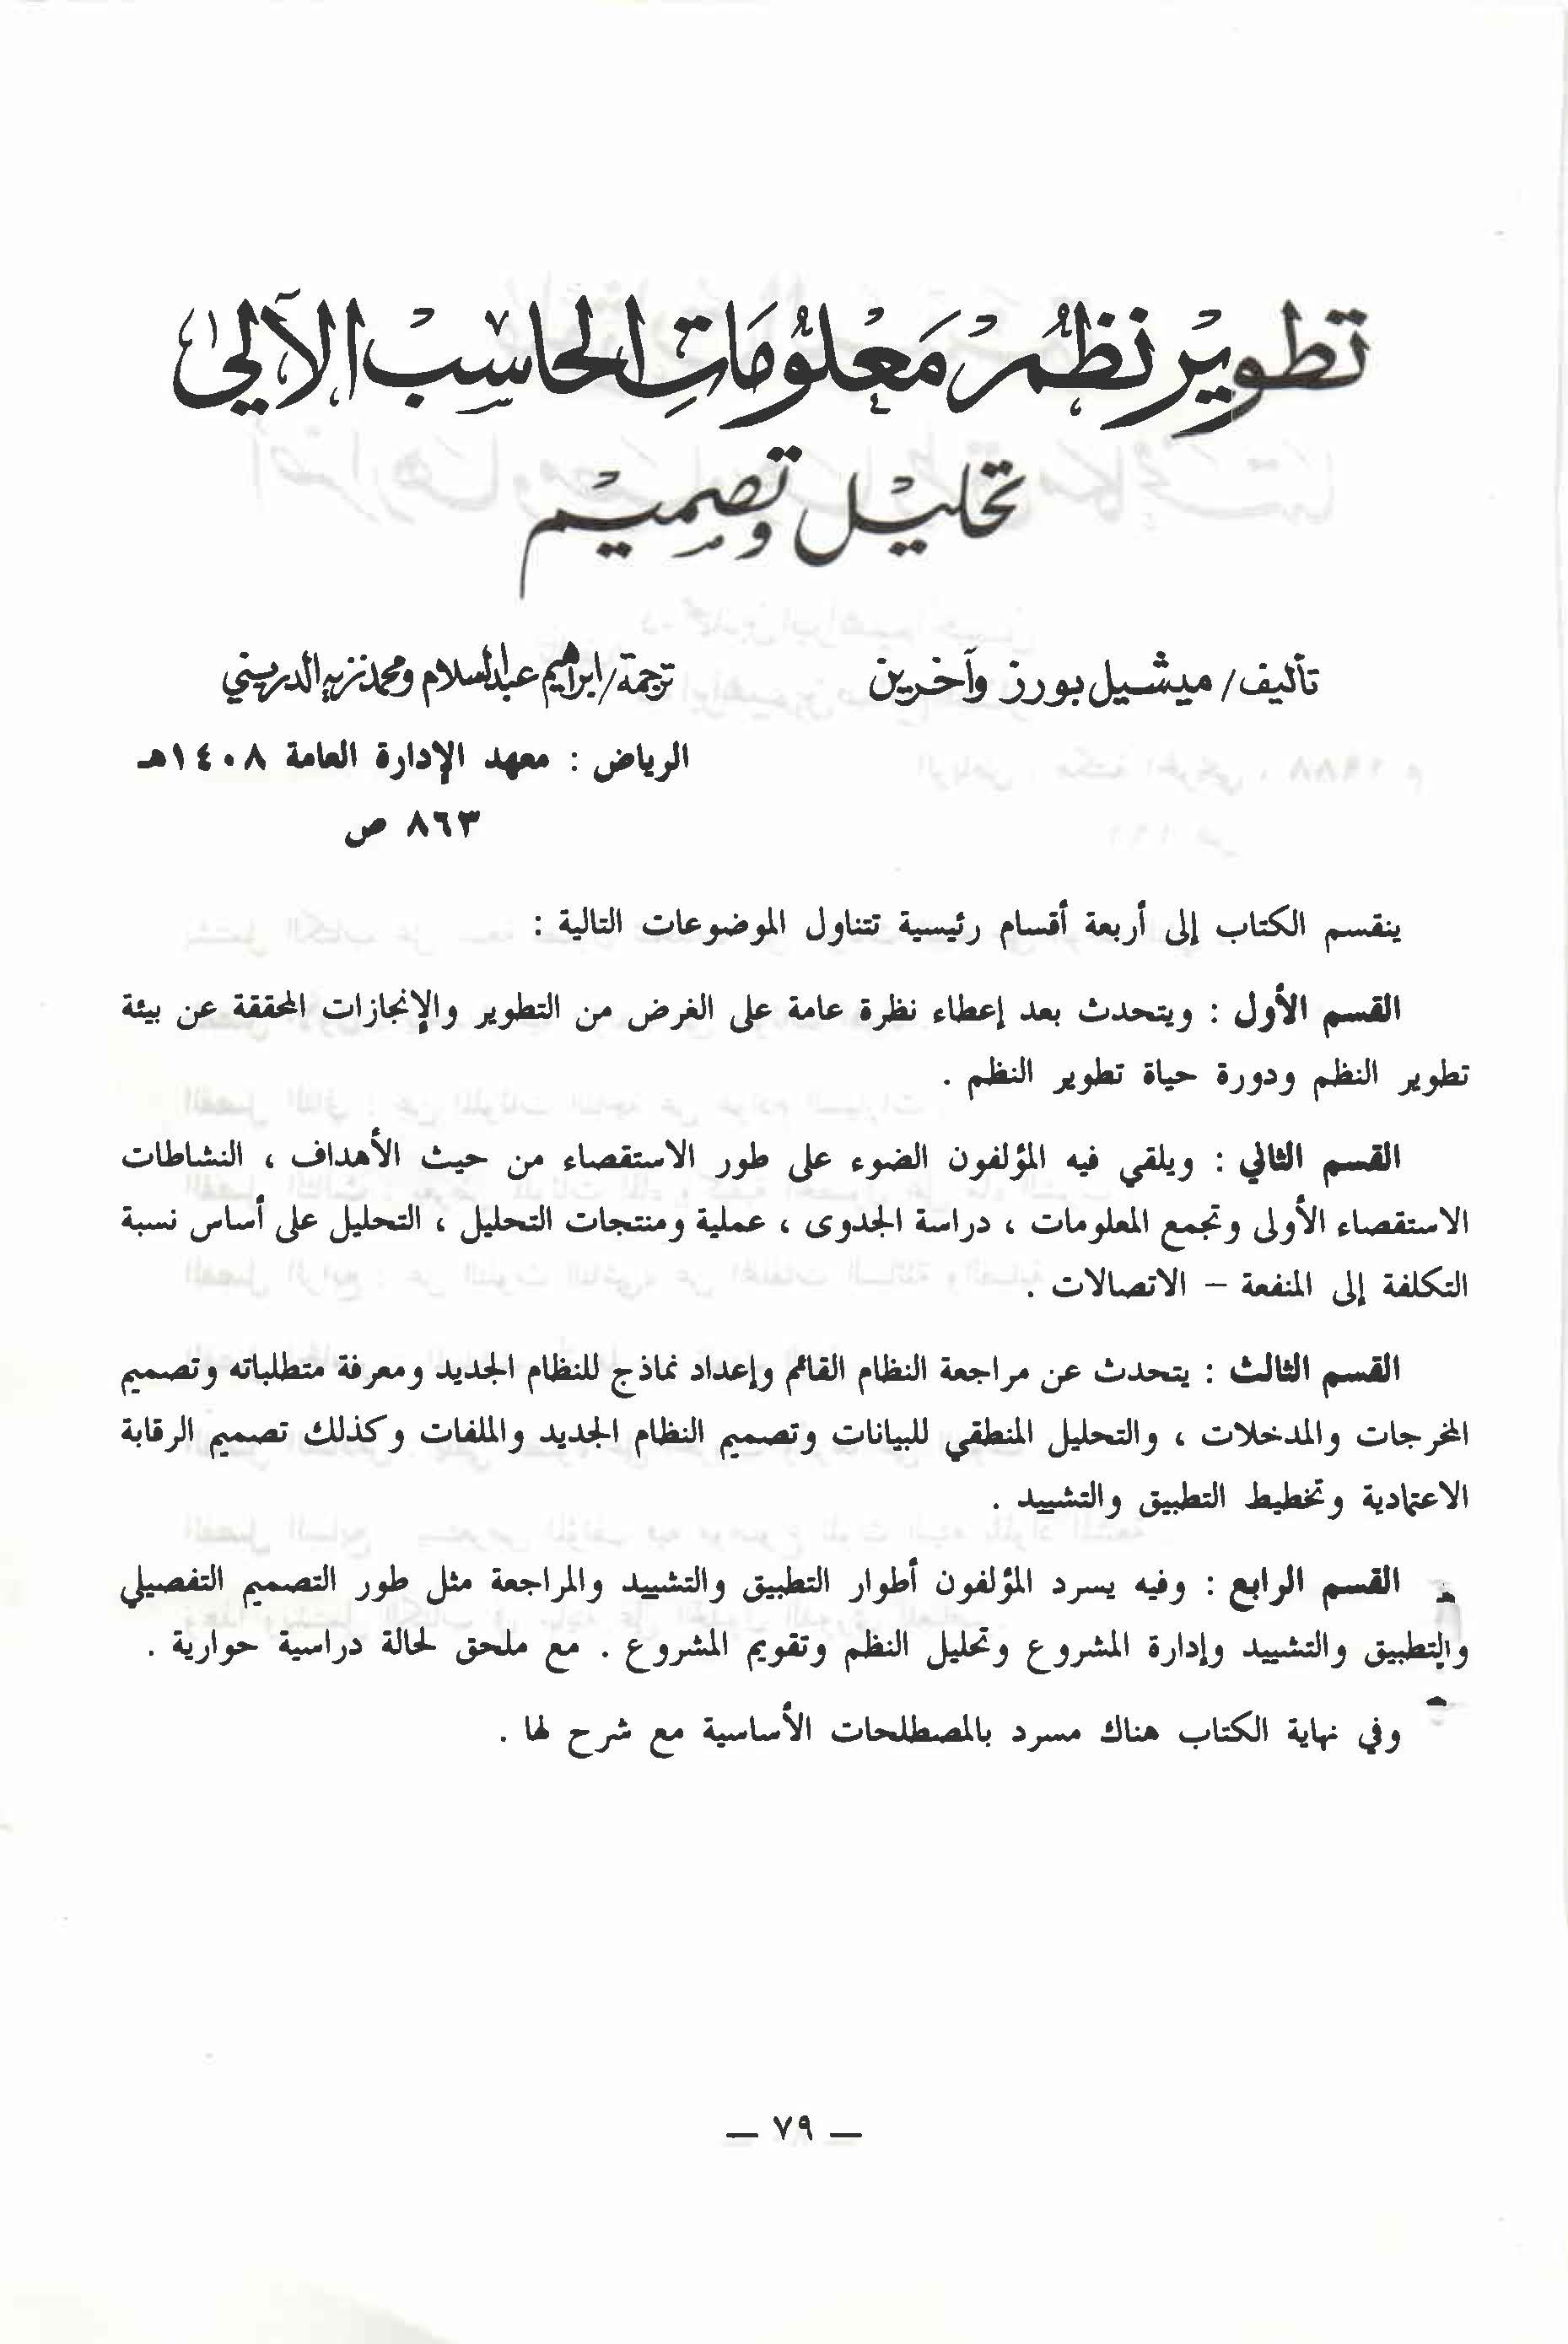 تطوير نظم معلومات الحاسب الآلي
تحليل وتصميم
تأليف/ ميشيل بورز وآخرين
ترجمة/ ابراهيم عبدالسلام ومحمد نزيه الدريني
الرياض : معهد الإدارة العامة ١٤٠٨هـ
٨٦٣ ص
ينقسم الكتاب إلى أربعة أقسام رئيسية تتناول الموضوعات التالية :
القسم الأول : ويتحدث بعد إعطاء نظرة عامة على الغرض من التطوير والإنجازات المحققة عن بيئة
تطوير النظم ودورة حياة تطوير النظم .
القسم الثاني : ويلقي فيه المؤلفون الضوء على طور الاستقصاء من حيث الأهداف ، النشاطات
الاستقصاء الأولى وتجمع المعلومات ، دراسة الجدوى ، عملية ومنتجات التحليل ، التحليل على أساس نسبة
التكلفة إلى المنفعة – الاتصالات .
القسم الثالث : يتحدث عن مراجعة النظام القائم وإعداد نماذج للنظام الجديد ومعرفة متطلباته وتصميم
المخرجات والمدخلات ، والتحليل المنطقي للبيانات وتصميم النظام الجديد والملفات وكذلك تصميم الرقابة
الاعتمادية وتخطيط التطبيق والتشييد .
القسم الرابع : وفيه يسرد المؤلفون أطوار التطبيق والتشييد والمراجعة مثل طور التصميم التفصيلي
والتطبيق والتشييد وإدارة المشروع وتحليل النظم وتقويم المشروع . مع ملحق لحالة دراسية حوارية .
وفي نهاية الكتاب هناك مسرد بالمصطلحات الأساسية مع شرح لها .
— ٧٩ —